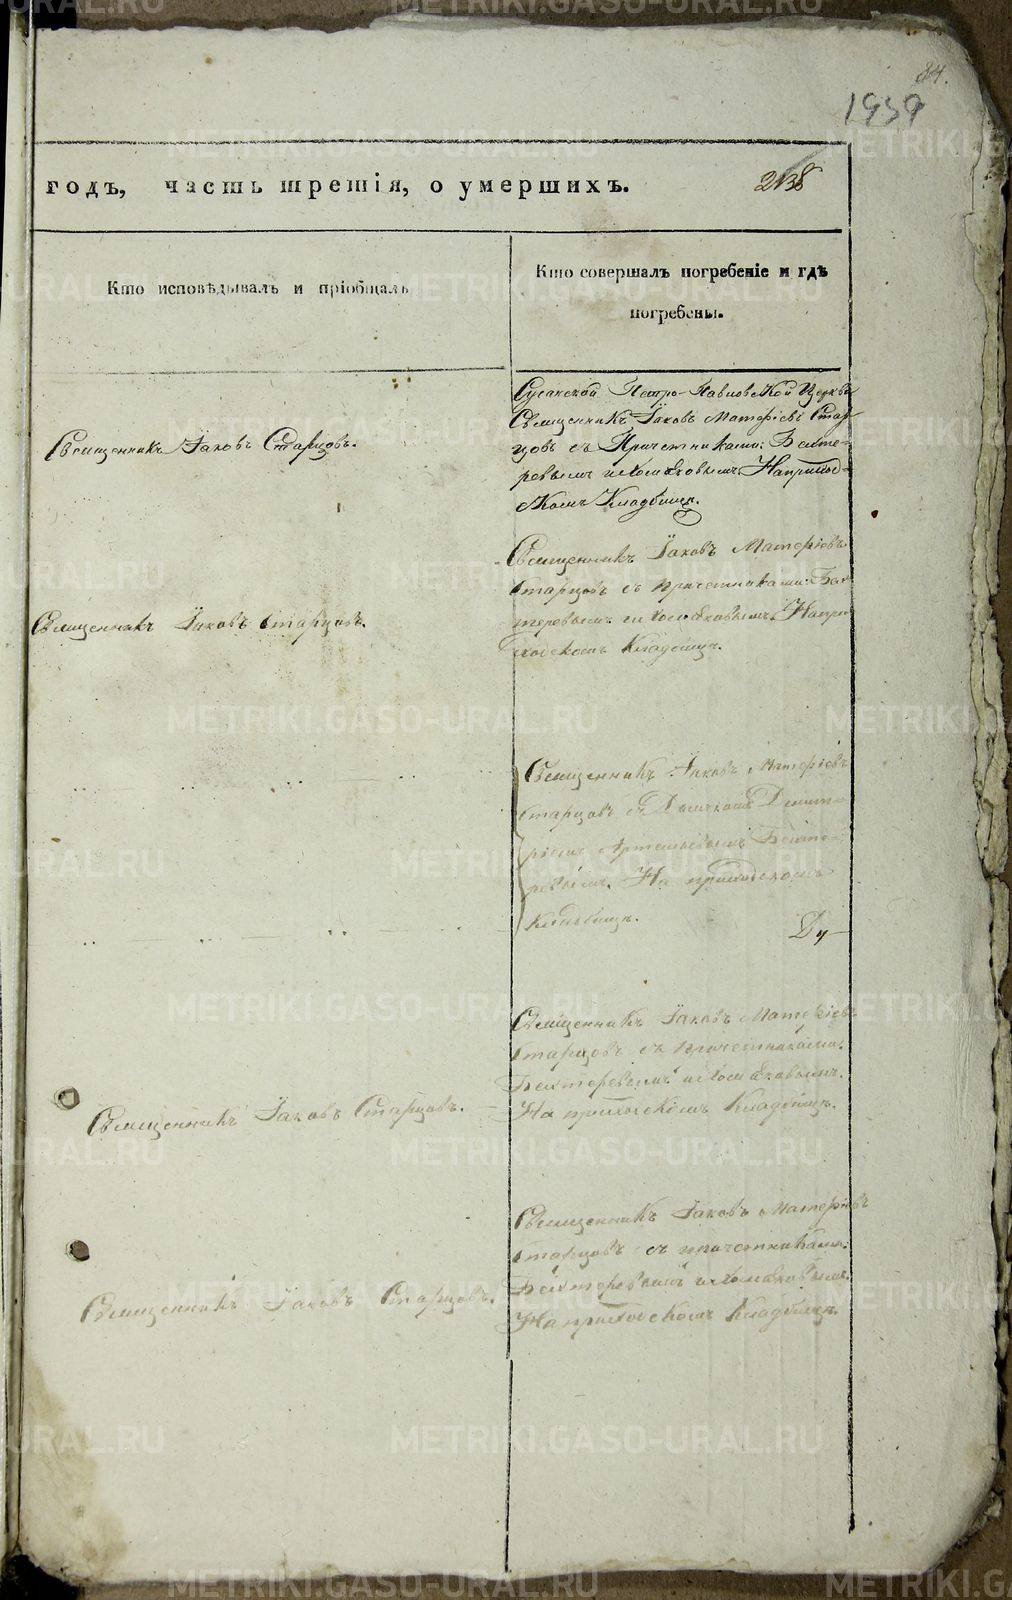 84.
1939
годъ, часть третія, о умершихъ.
2138
Кто исповѣдывалъ и пріобщалъ
Кто совершалъ погребеніе и гдѣ
погребены.
Священникъ Іаковъ Старцовъ.
Сусанской Петро-Павловской Церкви
Священникъ Іаковъ Матѳріевъ Стар-
цовъ съ Причетниками: Бехте-
ревымъ и Хомяковымъ. На приход-
скомъ Кладбищѣ.
Священникъ Іаковъ Старцовъ.
Священникъ Іаковъ Матѳріевъ
Старцовъ съ причетниками: Бех-
теревымъ и Хомяковымъ. На при-
ходскомъ Кладбищѣ.
Священникъ Іаковъ Матѳріевъ
Старцовъ съ Дьячкомъ Димит-
ріемъ Артемьевымъ Бехте-
ревымъ. На приходскомъ
Кладбищѣ.
Ду-
Священникъ Іаковъ Старцовъ.
Священникъ Іаковъ Матѳріевъ
Старцовъ съ причетниками:
Бехтеревымъ и Хомяковымъ.
На приходскомъ Кладбищѣ.
Священникъ Іаковъ Старцовъ.
Священникъ Іаковъ Матѳріевъ
Старцовъ съ причетниками:
Бехтеревымъ и Хомяковымъ.
На приходскомъ Кладбищѣ.
METRIKI.GASO-URAL.RU